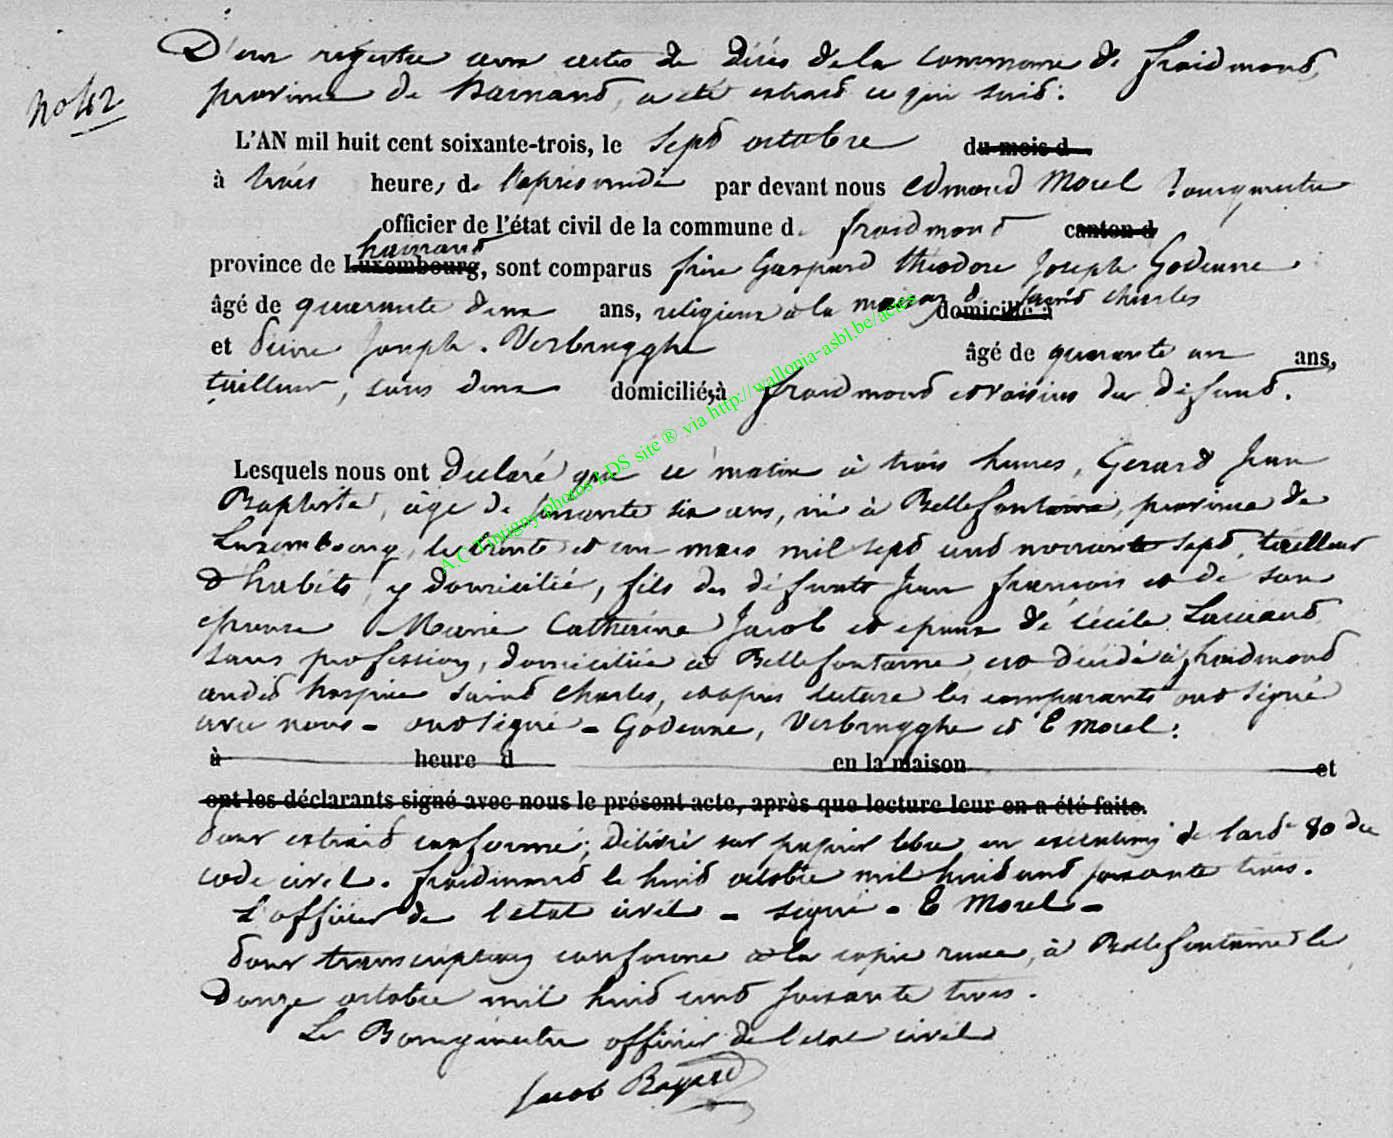 D'un registre aux actes de décès de la commune de froidmond,
No 42
province de Hainaut, a été extrait ce qui suit :
L'AN mil huit cent soixante-trois, le sept octobre du mois d
à trois heures de l'après midi par devant nous Edmond Morel bourgmestre
officier de l'état civil de la commune de froidmont canton d
hainaut
province de Luxembourg, sont comparus frère Gaspard théodore Joseph Godenne
âgé de quarante deux ans, religieux à la maison de saint charles domicilié à
et Pierre Joseph Verbrugghe âgé de quarante un ans,
tailleur, tous deux domiciliés à froidmont et voisins du défunt.
Lesquels nous ont Déclaré que ce matin à trois heures, Gerard Jean
Baptiste, âgé de soixante six ans, né à Bellefontaine, province de
Luxembourg, le trente et un mars mil sept cent nonante sept, tailleur
d'habits y domicilié, fils des défunts Jean françois et de son
épouse Marie Catherine Jacob et époux de Cécile
sans profession, domiciliée à Bellefontaine, est décédé à froidmont
audit hospice Saint Charles, et après lecture les comparants ont signé
avec nous - ont signé - Godenne, Verbrugghe et E Morel :
à heure d en la maison et
ont les déclarants signé avec nous le présent acte, après que lecture leur en a été faite.
Pour extrait conforme, Délivré sur papier libre en exécution de l'art. 80 du
code civil. froidmont le huit octobre mil huit cent soixante trois.
L'officier de l'état civil - signé - E Morel -
Pour transcription conforme à la copie reçue, à Bellefontaine le
douze octobre mil huit cent soixante trois.
Le Bourgmestre officier de l'état civil
Jacob
A.C. Tintigny photos LDS site ® via http://wallonia-asbl.be/actes